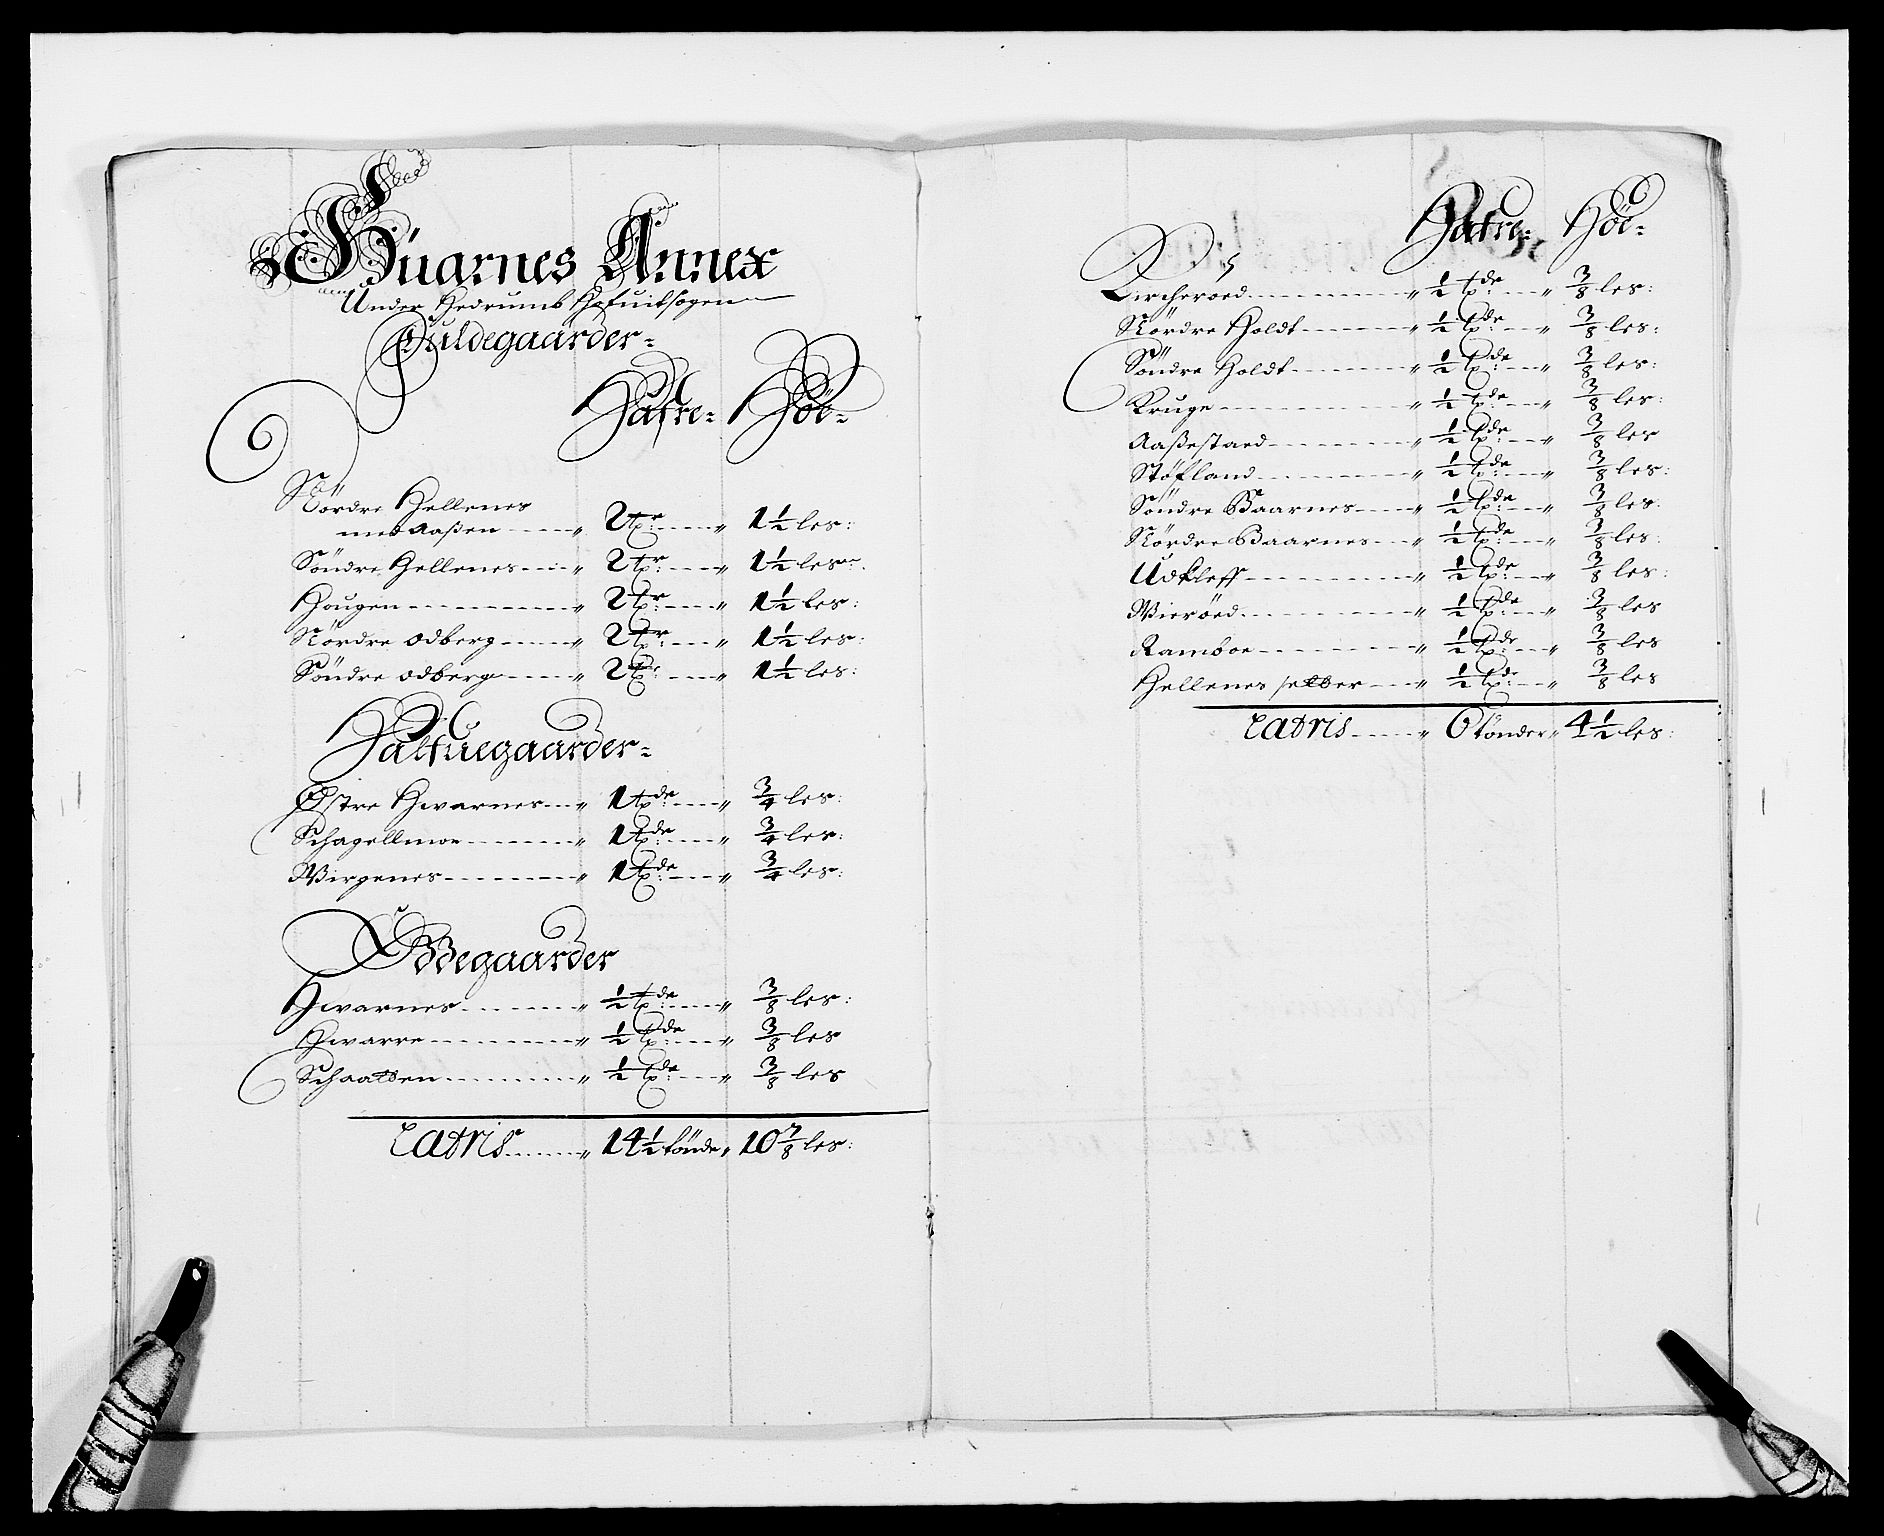 Huarnes Annex
Under Hedrumbs Hofuitsogen
Fuldegaarder-
Hafre- Höe-
Nördre Hellenes
med Aaßen " 2 tr " 1½ les:
Söndre Hellenes " 2 tr " 1½ les:
Hougen " 2 tr " 1½ les:
Nördre odberg " 2 tr " 1½ les:
Söndre odberg " 2 tr " 1½ les:
Halfuegaarder-
Østre Hwarnes " 1 tde " ¾ les:
Schagellmoe " 1 tde " ¾ les:
Wirgenes " 1 tde " ¾ les:
Ødegaarder
Hwarnes " ½ tde " ⅜ les:
Hwarre " ½ tde " ⅜ les
Schaatten " ½ tde " ⅜ les
Latris " 14½ tönde " 10⅞ les:
Hafre- Höe-
Kircheroed " ½ tde " ⅜ les:
Nördre Holdt " ½ tde " ⅜ les:
Söndre Holdt " ½ tde " ⅜ les:
Kruge " ½ tde " ⅜ les:
Aaßestaed " ½ tde " ⅜ les
Stöfland " ½ tde " ⅜ les:
Söndre Baarnes " ½ tde " ⅜ les:
Nördre Baarnes " ½ tde " ⅜ les:
Udkleff " ½ tde " ⅜ les:
Wieröed " ½ tde " ⅜ les
Ramboe " ½ tde " ⅜ les
Hellenes setter " ½ tde " ⅜ les
Latris " 6 tönder " 4½ les: